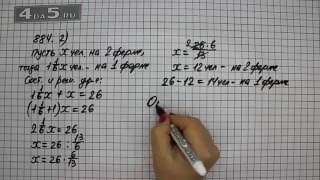 4DA5.RU
884. 2)
Пусть x чел. на 2 ферме,
тогда 1 1/6 x чел. - на 1 ферме
Сост. и реш. ур-е:
1 1/6 x + x = 26
(1 1/6 + 1) x = 26
2 1/6 x = 26
x = 26 : 13/6
x = 26 · 6/13
x = 2 26 · 6 / 13
x = 12 чел - на 2 ферме
26 - 12 = 14 чел - на 1 ферме
О